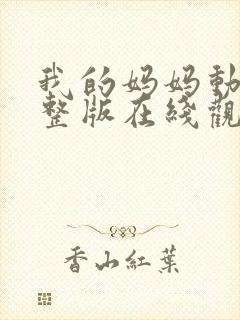 我的妈妈動
整版在綫觀
香山紅葉